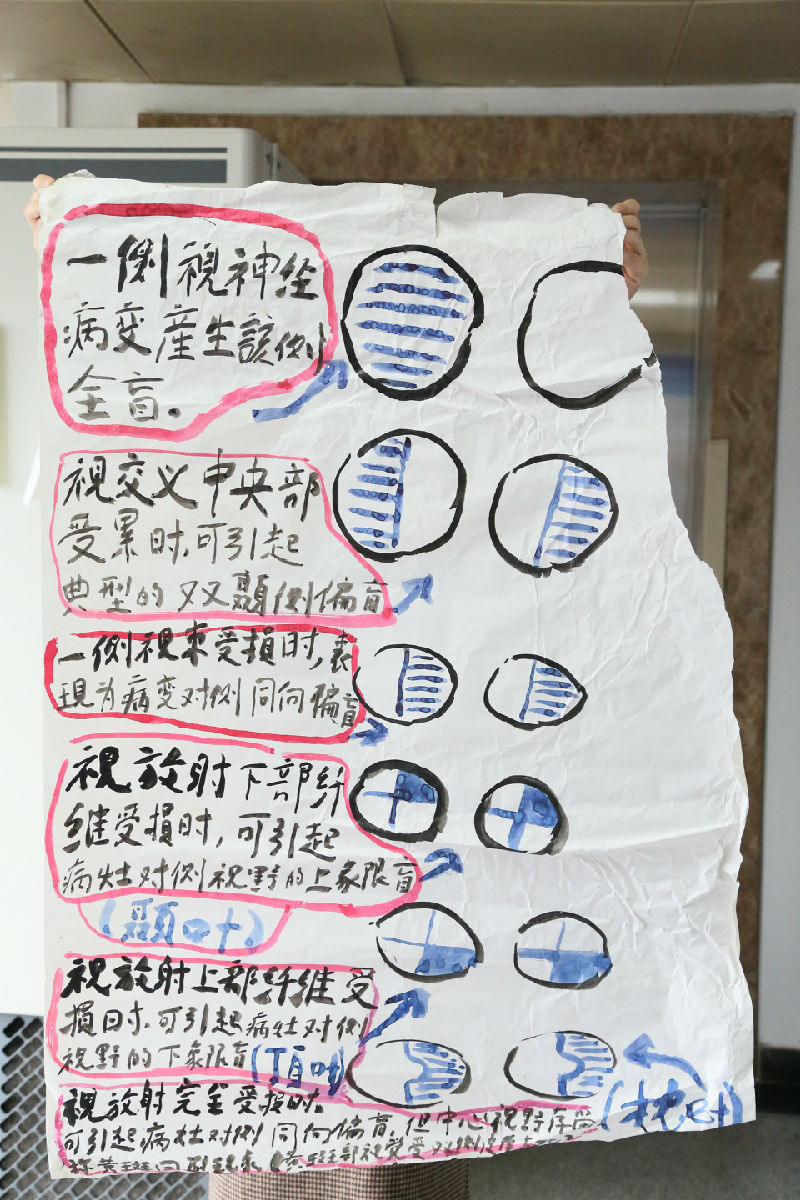 一侧視神经
病变産生該侧
全盲。
視交义中央部
受累时,可引起
典型的双顳侧偏盲
一侧視束受損时,表
現为病变对侧同向偏盲
視放射下部纤
维受損时,可引起
病灶对侧視野的上象限盲
(顳叶)
視放射上部纤维受
損时.可引起病灶对侧
視野的下象限盲(頂叶)
視放射完全受損时.
可引起病灶对侧同向偏盲,但中心視野存
(枕叶)
称黄斑回